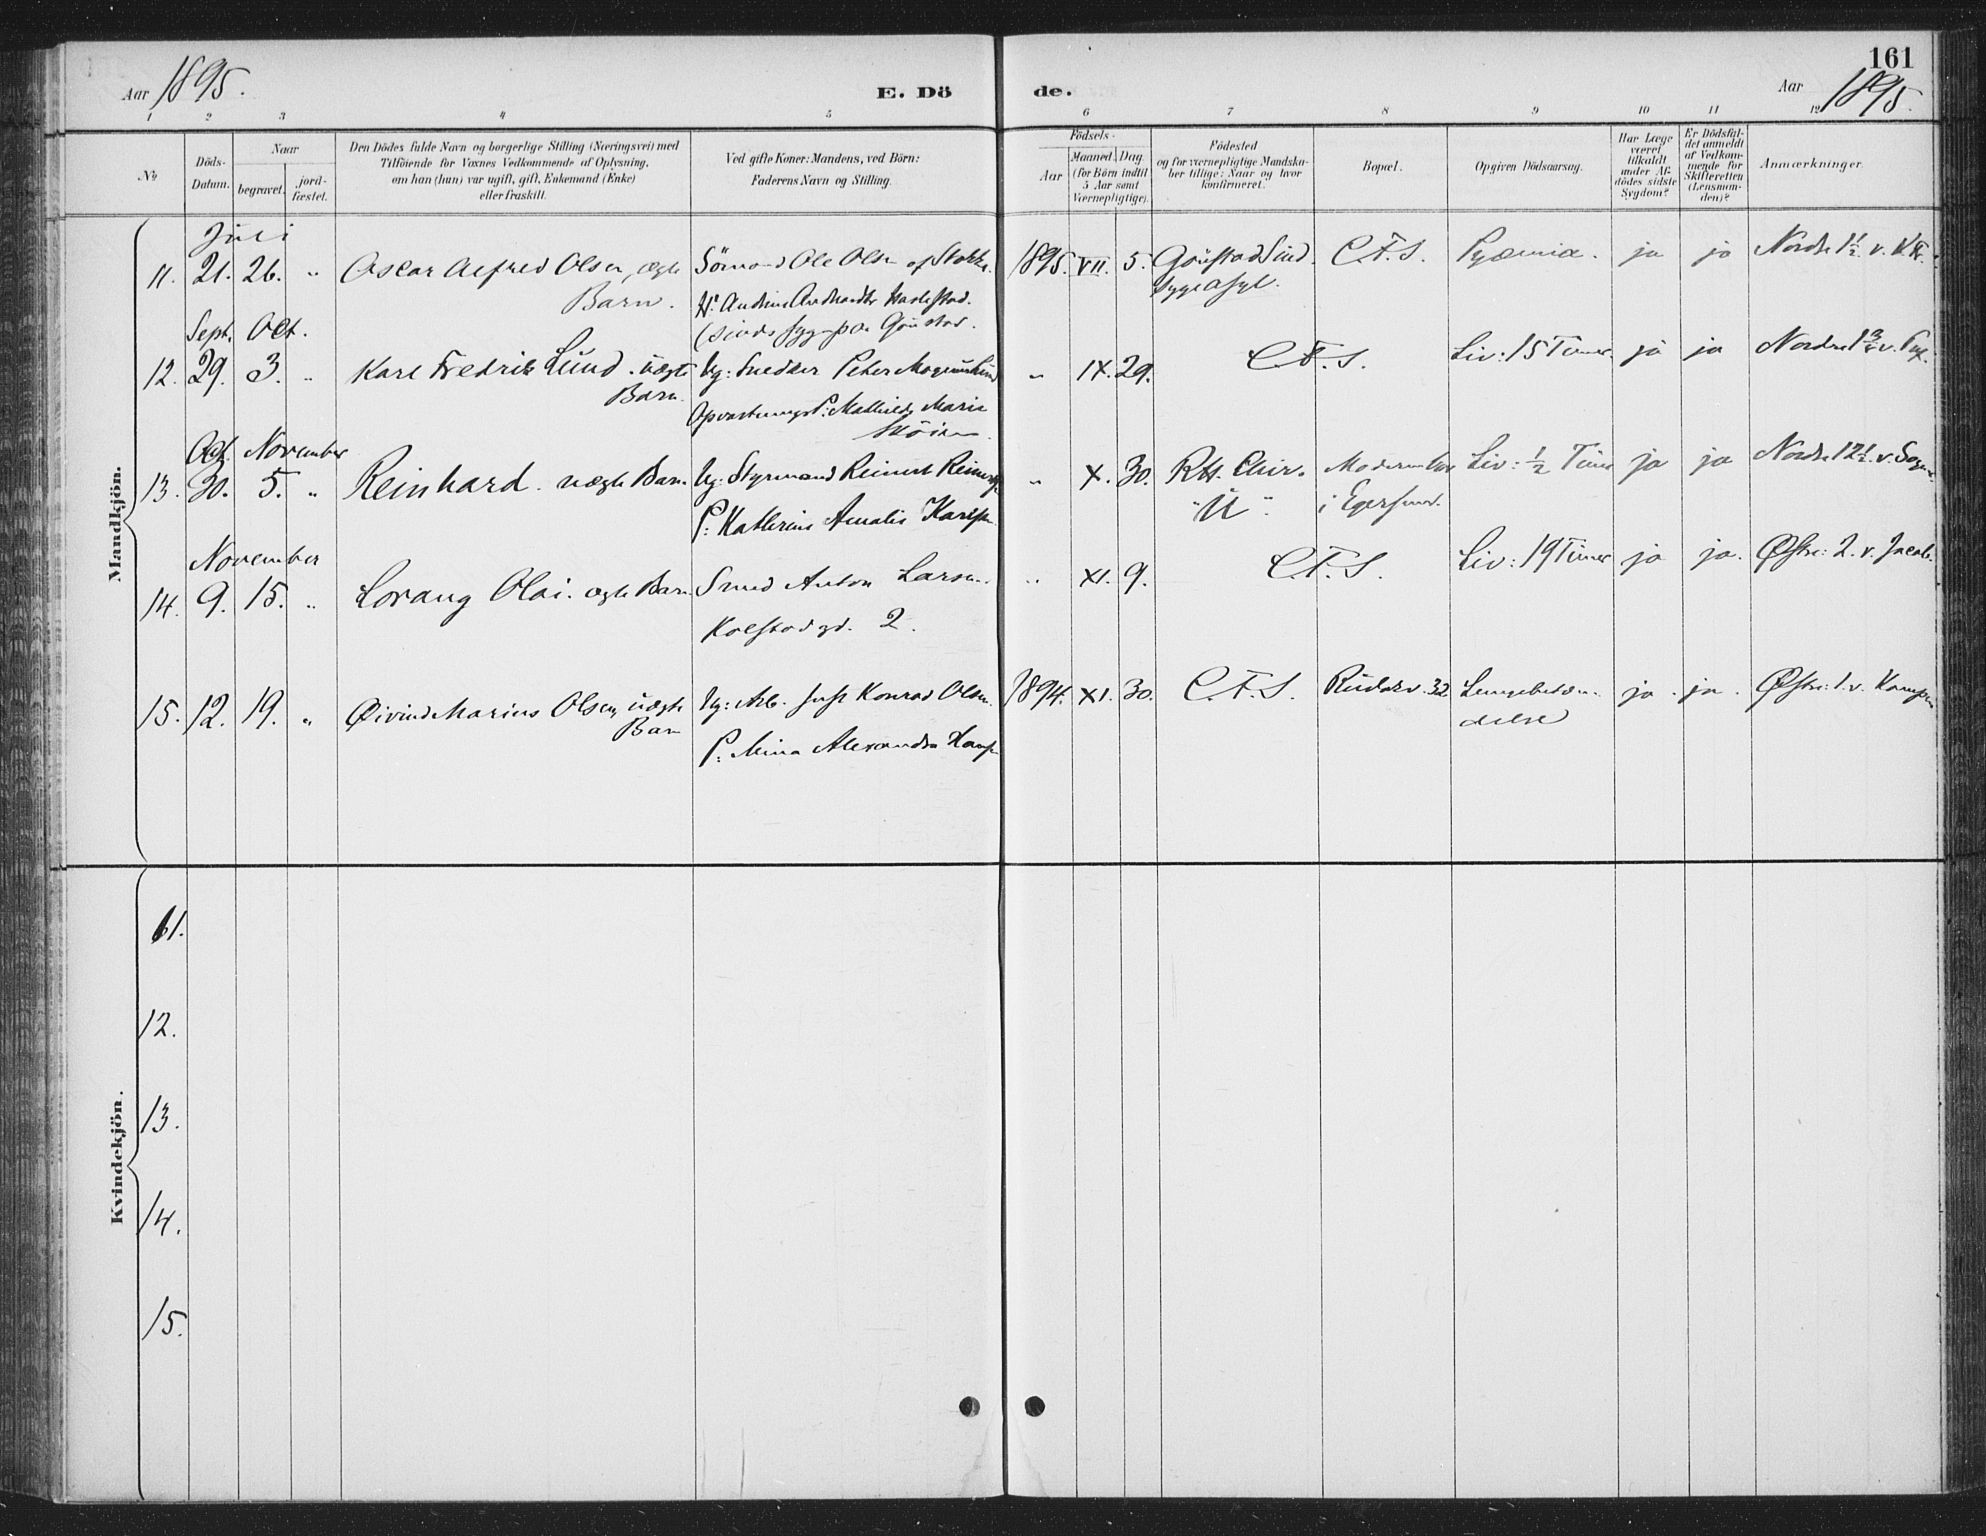 161
Aar 1895.
E. Dö
de.
Aar 1895.
1 2 3 4 5 6 7 8 9 10 11 12
No
Döds-
Datum.
Naar
begravet.
jord-
fæstet.
Den Dödes fulde Navn og borgerlige Stilling (Næringsvei) med
Tilföiende for Voxnes Vedkommende af Oplysning,
om han (hun) var ugift, gift, Enkemand (Enke)
eller fraskilt.
Ved gifte Koner: Mandens, ved Börn:
Faderens Navn og Stilling.
Födsels-
Aar
Maaned. Dag.
(for Börn indtil
5 Aar samt
Værnepligtige).
Födested
og for værnepligtige Mandska-
ber tillige: Naar og hvor
konfirmeret.
Bopæl.
Opgiven Dödsaarsag.
Har Læge
været
tilkaldt
under Af-
dödes sidste
Sygdom?
Er Dödsfal-
det anmeldt
af Vedkom-
mende for
Skifteretten
(Lensman-
den)?
Anmærkninger.
Mandkjön.
Juli
11. 21. 26. " Oscar Alfred Olsen, ægte Sömand Ole Olsen af 1895. VII. 5. C.F.S. Pyæmia. ja ja Nordre 1½ v.
Barn.
Sept. Oct.
12. 29. 3. " Karl Fredrik Lund. uægte Ug: Snedker Peter " IX. 29. C.F.S. Liv: 15 Timer. ja ja Nordre 1¾ v.
Barn. Mathilde Marie
Oct. November
13. 30. 5. " Reinhard. uægte Barn Ug: Styrmand Reinert " X. 30. i Egersund. Liv: ½ Time ja ja Nordre 12½ v.
P: Kathrine Amalie
November
14. 9. 15. " Lorang Olai. ægte Barn Smed Anton Larsen. " XI. 9. C.F.S. Liv: 19 Timer ja ja. Østre: 2. v. Jacob.
Kolstadgd. 2.
15. 12. 19. " Øivind Marius Olsen, uægte Ug: Arb. Konrad Olsen. 1894. XI. 30. C.F.S. Rudsv. 32 Lungebetæn- ja. ja. Østre: 1. v.
Barn P. Mina Alexandra delse
Kvindekjön.
11.
12.
13.
14.
15.